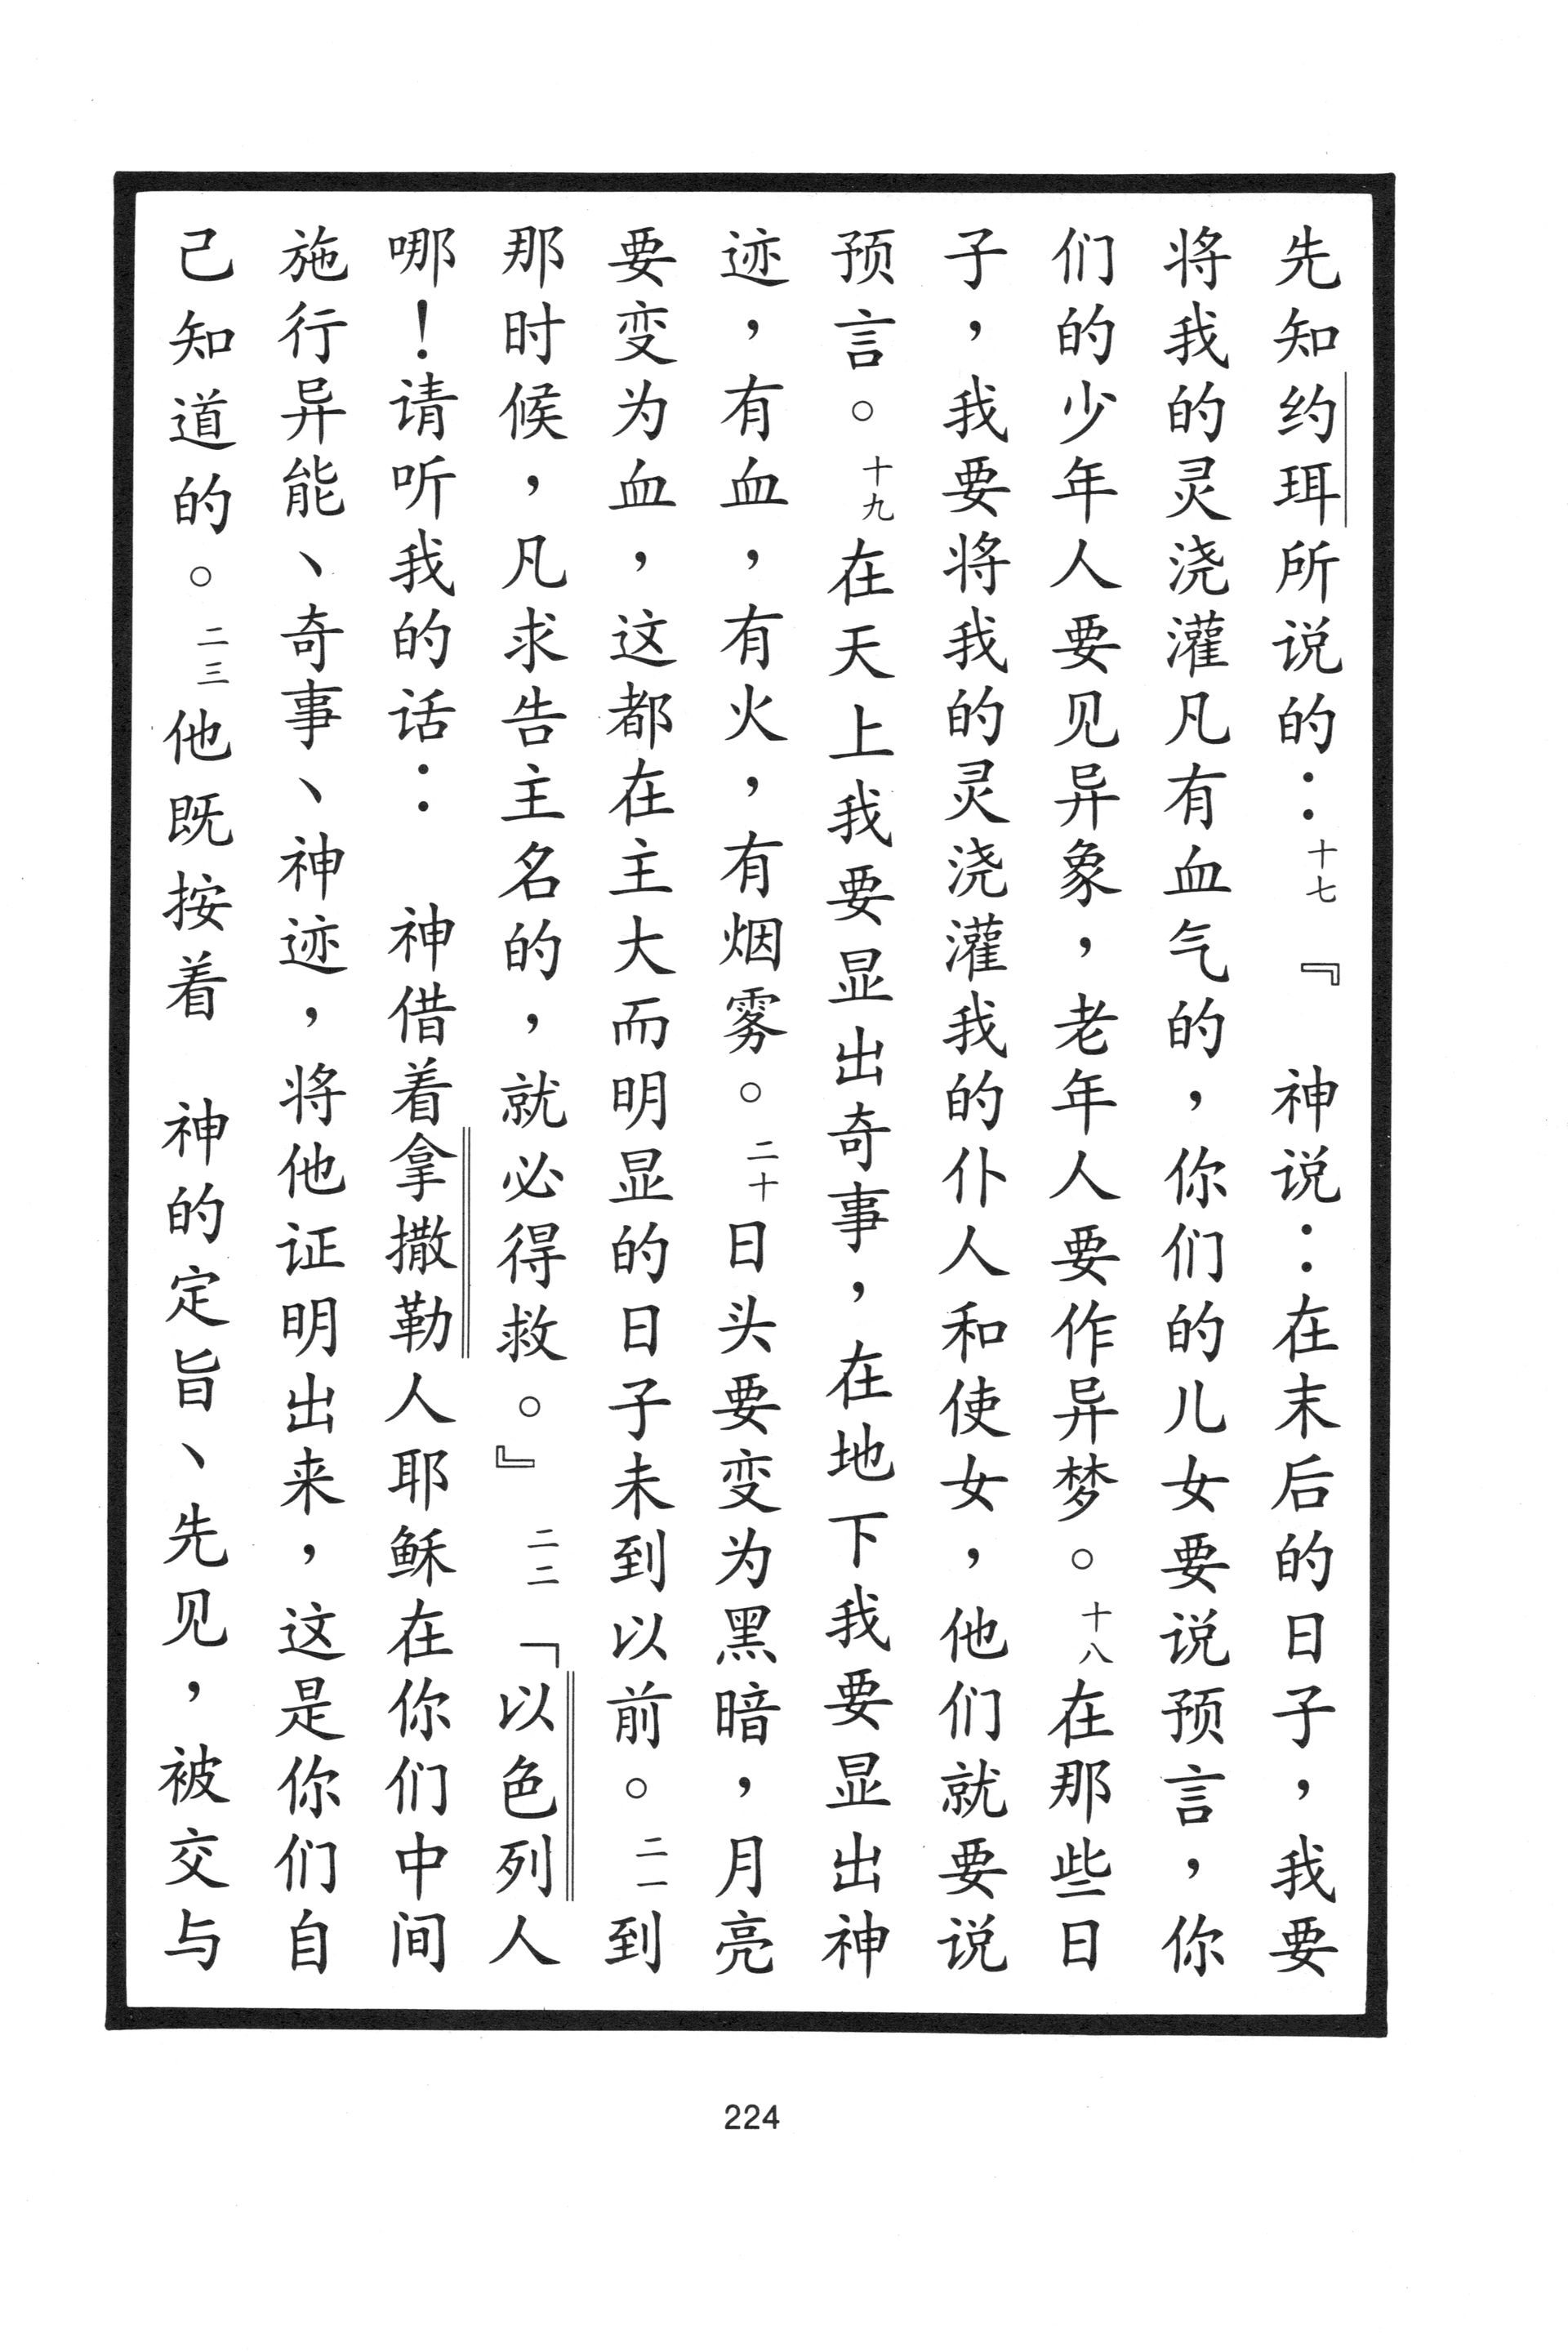 先知约珥所说的：十七『　神说：在末后的日子，我要
将我的灵浇灌凡有血气的，你们的儿女要说预言，你
们的少年人要见异象，老年人要作异梦。十八在那些日
子，我要将我的灵浇灌我的仆人和使女，他们就要说
预言。十九在天上我要显出奇事，在地下我要显出神
迹，有血，有火，有烟雾。二十日头要变为黑暗，月亮
要变为血，这都在主大而明显的日子未到以前。二一到
那时候，凡求告主名的，就必得救。』二二「以色列人
哪！请听我的话：　神借着拿撒勒人耶稣在你们中间
施行异能、奇事、神迹，将他证明出来，这是你们自
己知道的。二三他既按着　神的定旨、先见，被交与
224